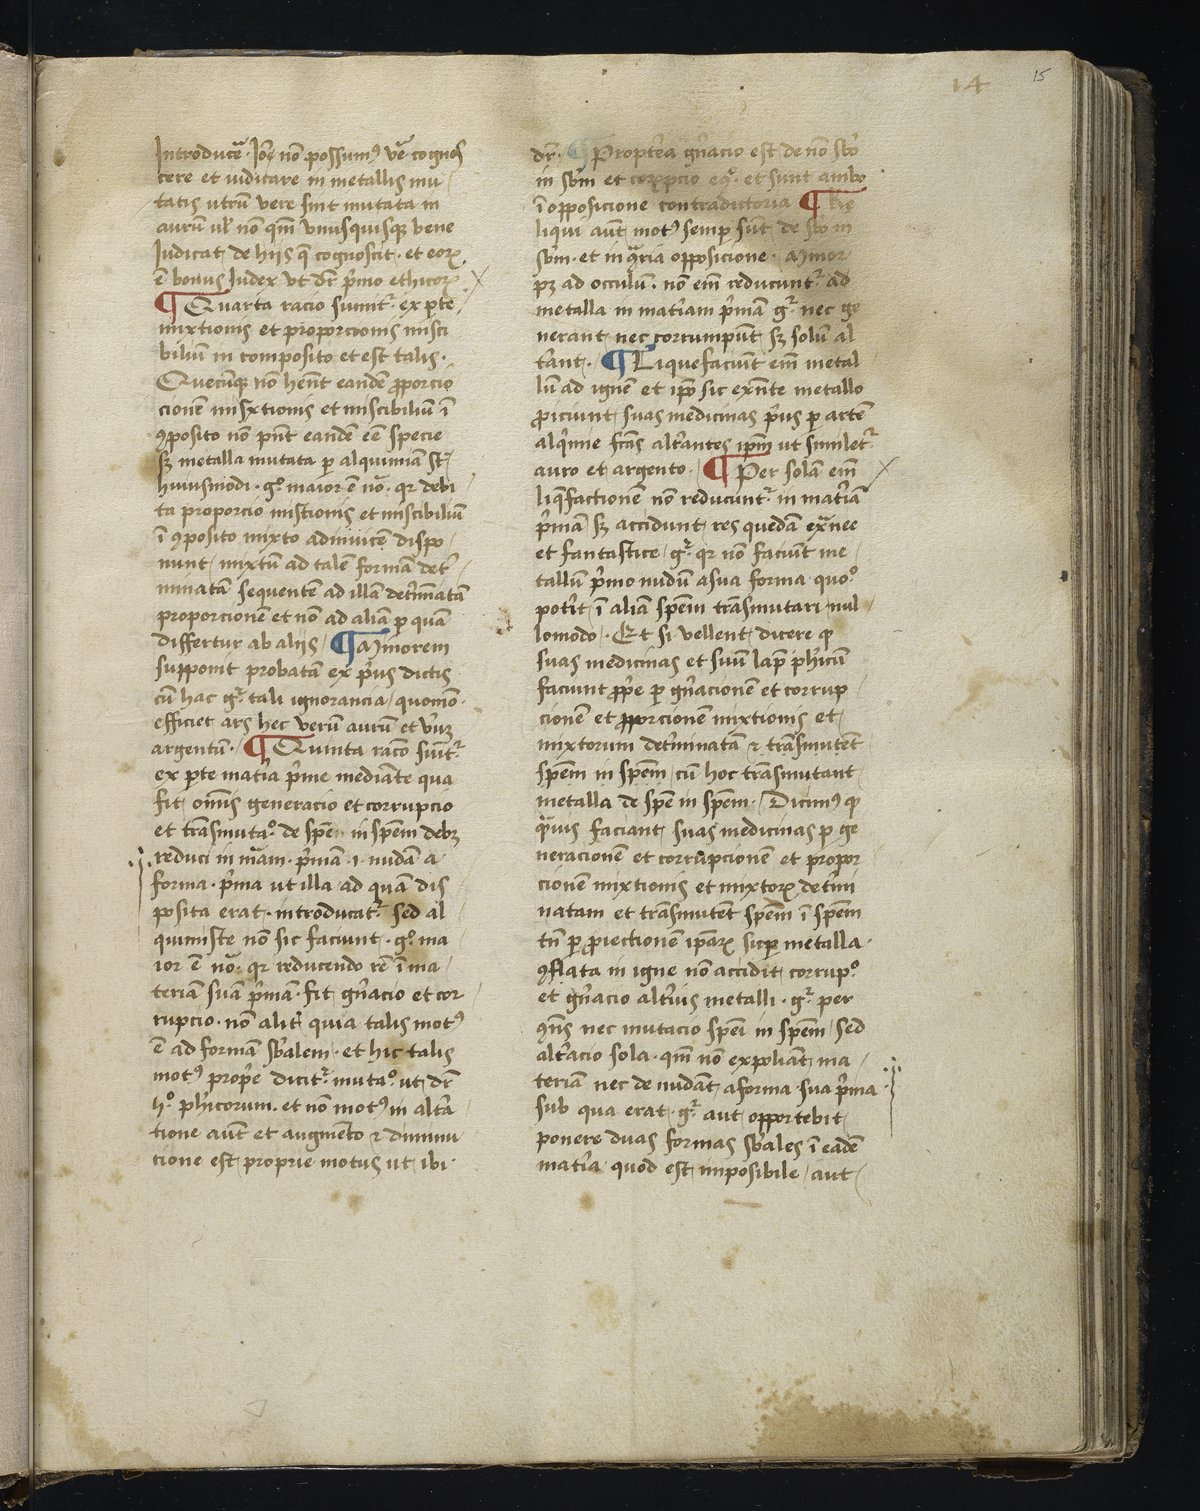 14
15
Introducẽ. Iõe nõ possumꝰ vẽ cognos
cere et iudicare in metallis mu
tatis utrũ vere sint mutata in
aurũ ul' nõ qm̃ vnusquisqꝫ bene
Iudicat de hiis q̃ cognoscit. et eoꝝ
ẽ bonus Iudex vt dr̃ p̃mo ethicoꝝ
¶ Quarta racio sumitᷣ ex ꝑte
mixtionis et proporcionis misci
biliũ in composito et est talis.
Quecũqꝫ nõ hẽnt eandẽ ꝓporcio
cionẽ misxtionis et miscibiliũ ĩ
ꝯposito nõ pñt eandẽ eẽ specie
sꝫ metalla mutata ꝑ alquimiã st̃
huiusmodi. gͦ maior ẽ nõ. qr debi
ta proporcio mistionis et miscibiliũ
ĩ ꝯposito mixto adinuicẽ dispo
nunt mixtũ ad talẽ formã det'
minatã sequentẽ ad illã det'm̃atã
proporcionẽ et nõ ad aliã ꝑ quã
differtur ab aliis ¶ Minorem
supponit probatã ex p̃us dictis
cũ hac gᷣ tali ignorancia quomõ
efficiet ars hec verũ aurũ et v'uꝫ
argentũ. ¶ Quinta racõ sũitᷣ
ex ꝑte mat'ia p̃me mediãte qua
fit om̃is generacio et corrupcio
et trãsmutaͦ. de spẽ in spẽm debꝫ
reduci in mãm. p̃mã .i. nudã a
forma. p̃ma ut illa ad quã dis
posita erat. introducatᷣ sed al
quimiste nõ sic faciunt. gͦ ma
ior ẽ nõ. qr reducendo rẽ ĩ ma
teriam suã p̃mã. fit gñacio et cor
rupcio. nõ alit' quia talis motꝰ
ẽ ad formã sb'alem. et hic talis
motꝰ prop'e dicitᷣ mutaͦ. ut dr̃
hͦ ph'icorum. et nõ motꝰ in alt'a
tione aũt et augmẽto ⁊ diminu
cione est proprie motus ut ibi
dr̃. ¶ Propt'ea gñacio est de nõ sb'o
in sb'm et corrpcio eqͣ. et sunt ambo
ĩ opposicione contradictoria ¶ Re
liqui aũt motꝰ semꝑ sũt de sb'o in
sb'm. et in ꝯ̃ria opposicione. Minor
pꝫ ad occulũ. nõ em̃ reducuntᷣ ad
metalla in mat'iam p̃mã gᷣ nec ge
nerant nec corrumpũt sꝫ solũ al
t'ant. ¶ Liquefaciũt em̃ metal
lũ ad ignẽ et ip̃o sic exñte metallo
ꝓiciunt suas medicinas p̃us ꝑ artẽ
alq'mie fc̃as alt'antes ip̃m ut similetᷣ
auro et argento. ¶ Per solã em̃
liq̃factionẽ nõ reducuntᷣ in mat'iã
p̃mã sꝫ accidunt res quedã exãnee
et fantastice gᷣ qr nõ faciũt me
tallũ p̃mo nudũ a sua forma quoͦ
pot'it ĩ aliã spẽm trãsmutari nul
lomodo. Et si vellent dicere ꝙ
suas medicinas et suũ lap̃ ph'icũ
faciunt ꝓp'e ꝑ gñacionẽ et corrup
cionẽ et ꝓporcionẽ mixtionis et
mixtorum det'minatã ⁊ trãsmutẽt
spẽm in spẽm cũ hoc trãsmutant
metalla de spẽ in spẽm. Dicimꝰ ꝙ
q̃uis faciant suas medicinas ꝑ ge
neracionẽ et corrupcionẽ et propor
cionẽ mixtionis et mixtoꝝ det'mi
natam et trãsmutẽt spẽm ĩ spẽm
tñ ꝑ ꝓiectionẽ ip̃aꝝ suꝑ metalla
ꝯflata in igne nõ accidit corrupͦ
et gñacio alt'ius metalli. gᷣ per
ꝯñs nec mutacio spẽi in spẽm sed
alt'acio sola. qm̃ nõ expoliãt ma
teriã nec denudãt a forma sua p̃ma
sub qua erat. gᷣ aut opportebit
ponere duas formas sb'ales ĩ eadẽ
mat'ia quod est imposibile aut